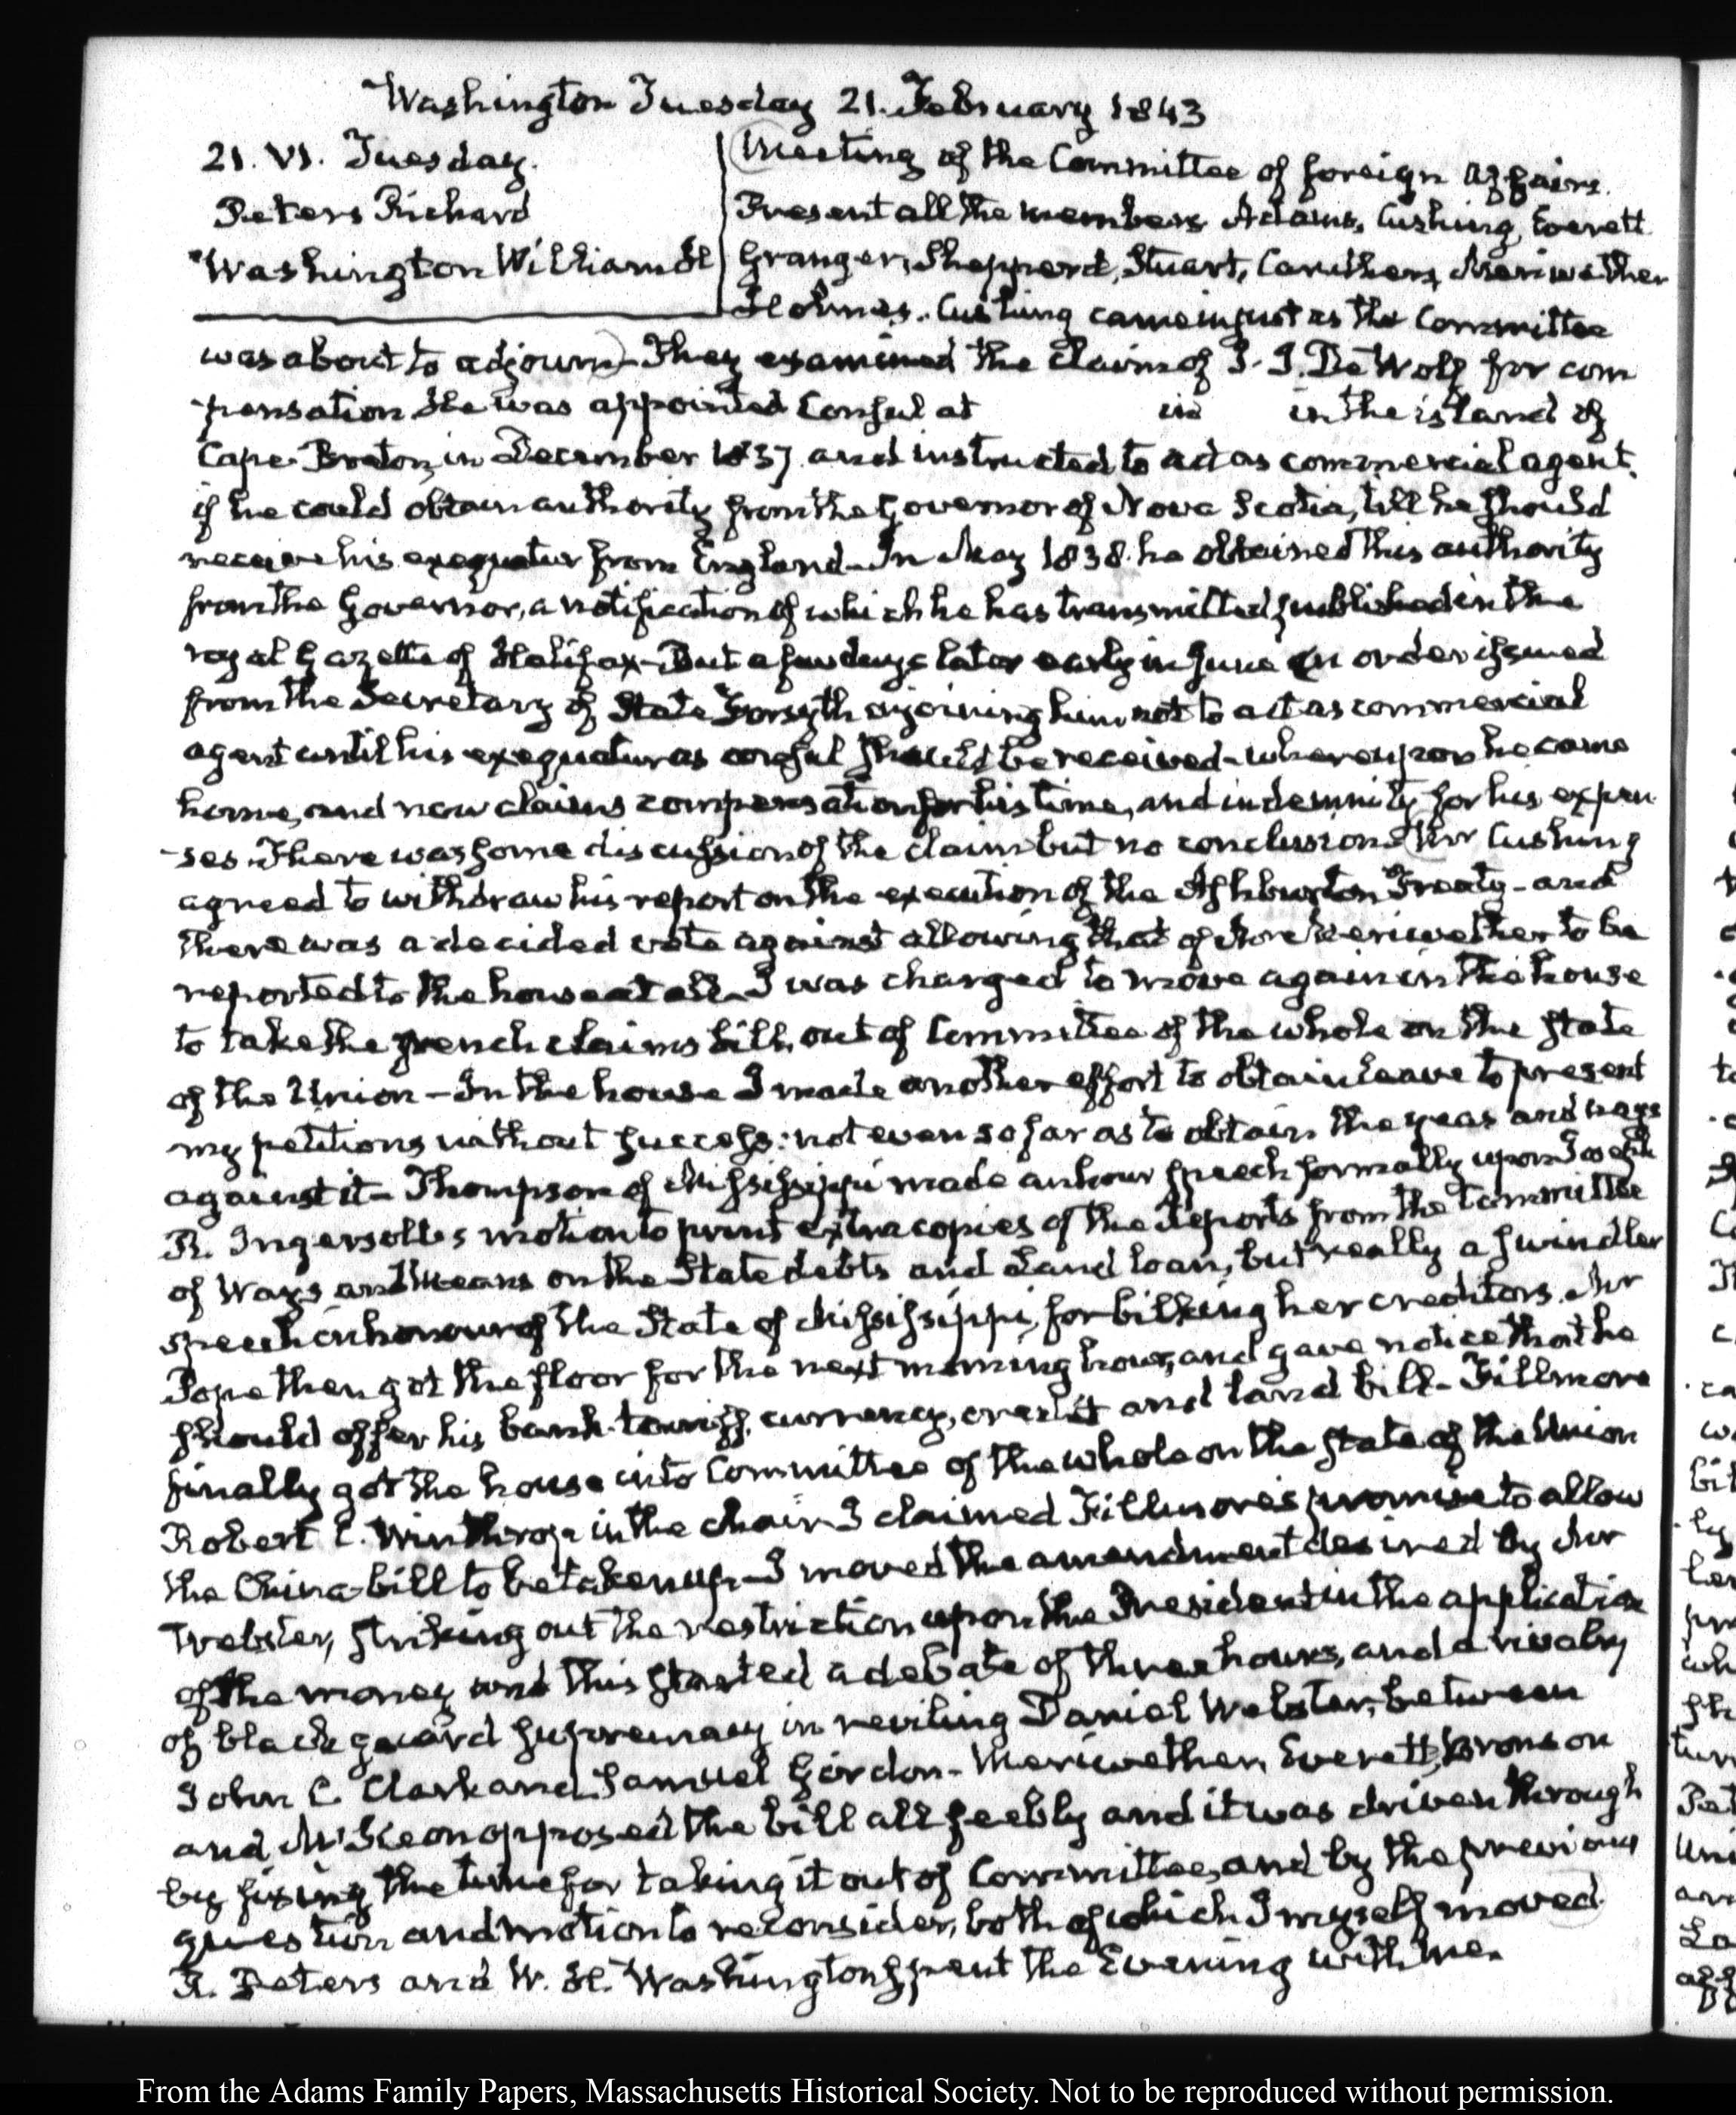 Washington Tuesday 21. February 1843
21. VI. Tuesday.
Peters Richard
Washington William H
Meeting of the Committee of foreign Affairs.
Present all the members Adams, Cushing, Everett
Granger, Shepperd, Stuart, Caruthers, Meriwether
Holmes. Cushing came in just as the Committee
was about to adjourn. They examined the claim of J. J. De Wolf for com
pensation He was appointed Consul at in in the island of
Cape Breton, in December 1837 and instructed to act as commercial agent,
if he could obtain authority from the Governor of Nova Scotia, till he should
receive his exequatur from England - In May 1838 he obtained this authority
from the Governor, a notification of which he has transmitted published in the
royal Gazette of Halifax - But a few days later early in June an order issued
from the Secretary of State Forsyth enjoining him not to act as commercial
agent until his exequatur as consul should be received - whereupon he came
home, and now claims compensation for his time, and indemnity for his expen
-ses. There was some discussion of the claim but no conclusion. Mr Cushing
agreed to withdraw his report on the execution of the Ashburton Treaty - and
there was a decided vote against allowing that of Mr Meriwether to be
reported to the house at all. I was charged to move again in the house
to take the french claims bill, out of Committee of the whole on the state
of the Union - In the house I made another effort to obtain leave to present
my petitions without success: not even so far as to obtain the yeas and nays
against it - Thompson of Mississippi made an hour speech formally upon Joseph
R. Ingersoll's motion to print extra copies of the reports from the Committee
of Ways and Means on the State debts and Land loan, but really a swindler
speech in honour of the State of Mississippi, for bilking her creditors. Mr
Pope then got the floor for the next morning hour, and gave notice that he
should offer his bank. tariff, currency, credit and land bill - Fillmore
finally got the house into Committee of the whole on the state of the Union
Robert C. Winthrop in the chair I claimed Fillmore's promise to allow
the China bill to be taken up - I moved the amendment desired by Mr
Webster, striking out the restriction upon the President in the application
of the money and this started a debate of three hours, and a rivalry
of blackguard supremacy in reviling Daniel Webster, between
John C. Clark and Samuel Gordon - Meriwether, Everett, Bronson
and McKeon opposed the bill all feebly and it was driven through
by fixing the time for taking it out of Committee, and by the previous
question and motion to reconsider, both of which I myself moved.
R. Peters and W. H. Washington spent the Evening with me.
From the Adams Family Papers, Massachusetts Historical Society. Not to be reproduced without permission.